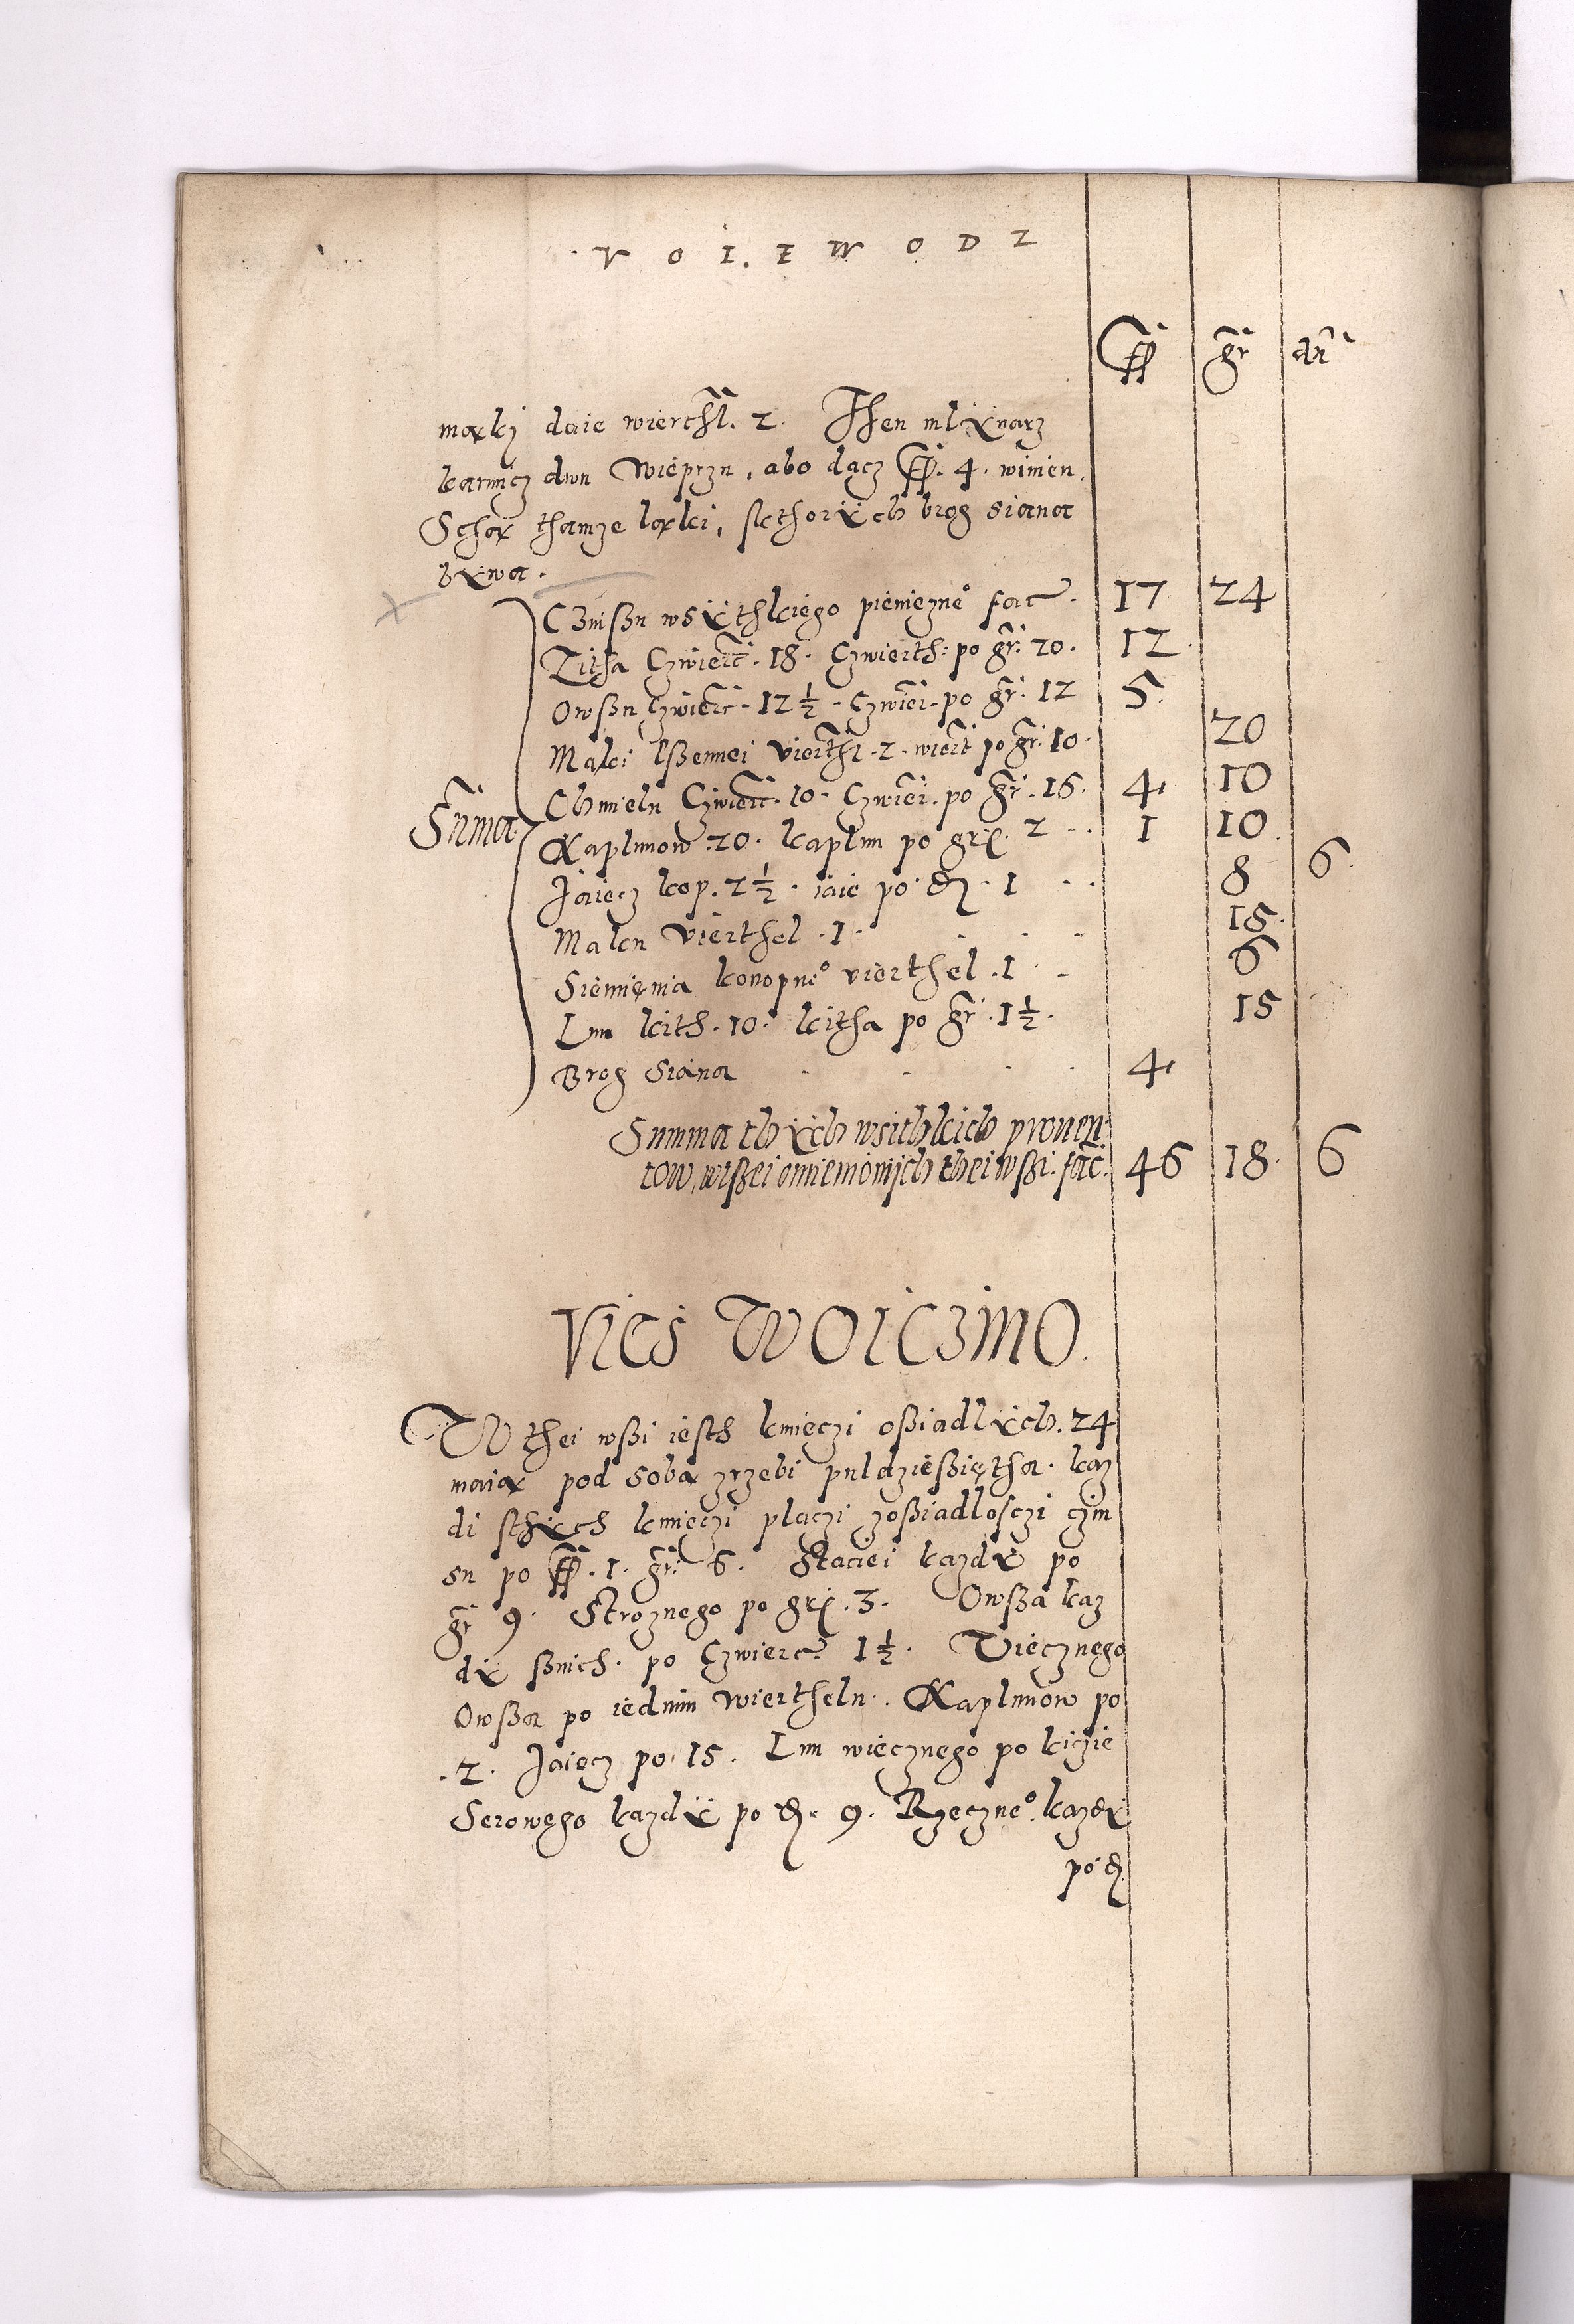 V O I E W O D Z
fl gr dn
mąki daie wierthl. 2. Then mlÿnarz
karmicz dwu Wieprzu, abo dacz fl. 4. winien.
Sthą thamze łąki, skthorÿch brog siana
bÿwa.
Czinßu wsÿthkiego pienieznego facit 17 24
Zitha Czwierc. 18. Czwierth. po gr. 20. 12
Owßu Czwierc. 12 ½. Czwier. po gr. 12 5
Mąki lßennei vierthl. 2. wiert po gr. 10. 20
Chmielu Czwierc. 10. Czwier. po gr. 16. 4 10
Kaplunow. 20. kaplun po gr. 2 1 10
Jaiecz kop. 2 ½. iaie po d. 1 8 6
Maku vierthel. 1. 15
Siemięnia konopnego vierthel. 1 6
Lnu kith. 10. kitha po gr. 1 ½. 15
Brog Siana 4
Suma
Summa thÿch wsithkich prouen
tow, wißei omienionich thei wßi. fac. 46 18 6
VIES WOICZINO.
W thei wßi iesth kmięczi oßiadlÿch. 24
maią pod sobą zrzebi puldzießiętha. kaz
di sthÿch kmięczi placzi zoßiadlosczi czin
su po fl. 1. gr. 6. Staciei kazdÿ po
gr 9. Stroznego po gr. 3. Owßa kaz
dÿ ßnich. po Czwierc 1 ½. Viecznego
Owßa po iednim Wierthelu. Kaplunow po
. 2. Jaięcz po. 15. Lnu wiecznego po kiczie
Serowego kazdÿ po d. 9. Rzecznego. kazdÿ
po d